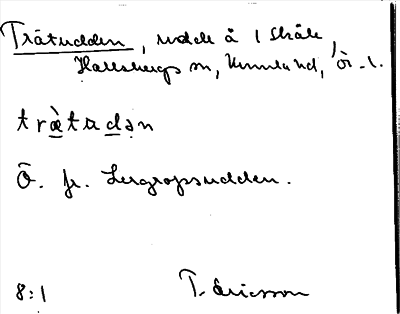 Trätudden, udde å 1 Skåle,
Hallsbergs sn, Kumla hd, Ör. l.
trä̀tudən
Ö. fr. Lergropsudden.
8:1 T. Ericsson